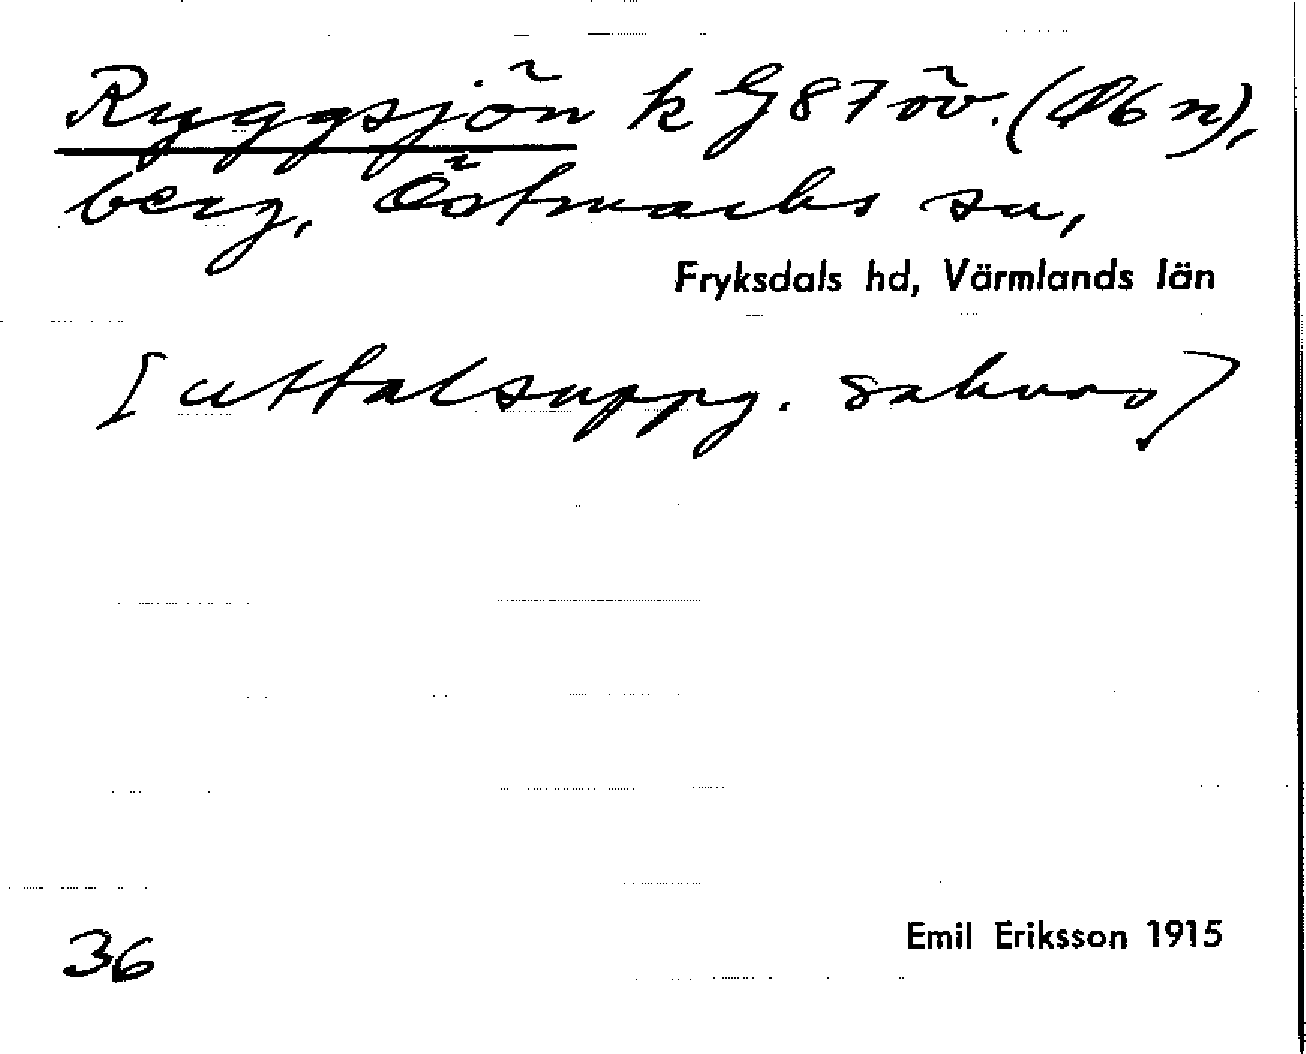 Ryggsjön k G 87 öv. (A6 n),
berg, Östmarks sn,
Fryksdals hd, Värmlands län
[uttalsuppg. saknas]
36
Emil Eriksson 1915